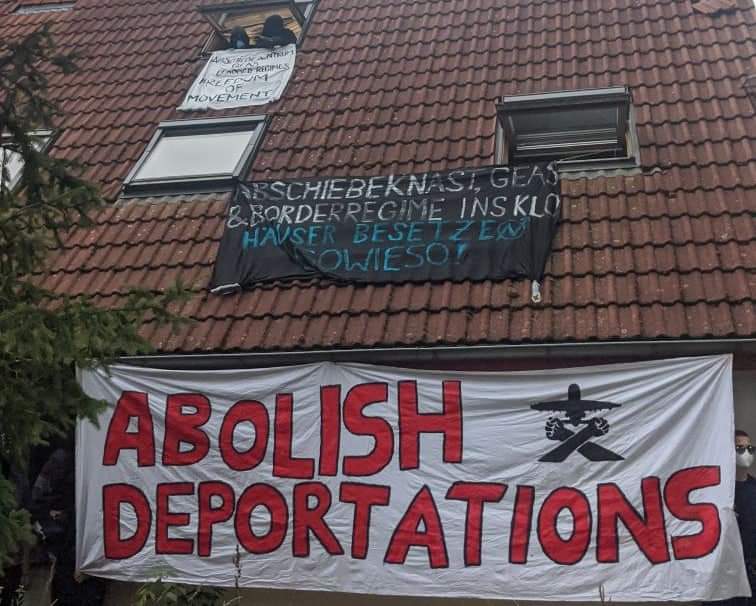 ABSCHIEBEZENTRUM
& BORDER REGIMES
FREEDOM
OF
MOVEMENT
ABSCHIEBEKNAST, GEAS
& BORDERREGIME INS KLO
HÄUSER BESETZEN
SOWIESO!
ABOLISH
DEPORTATIONS